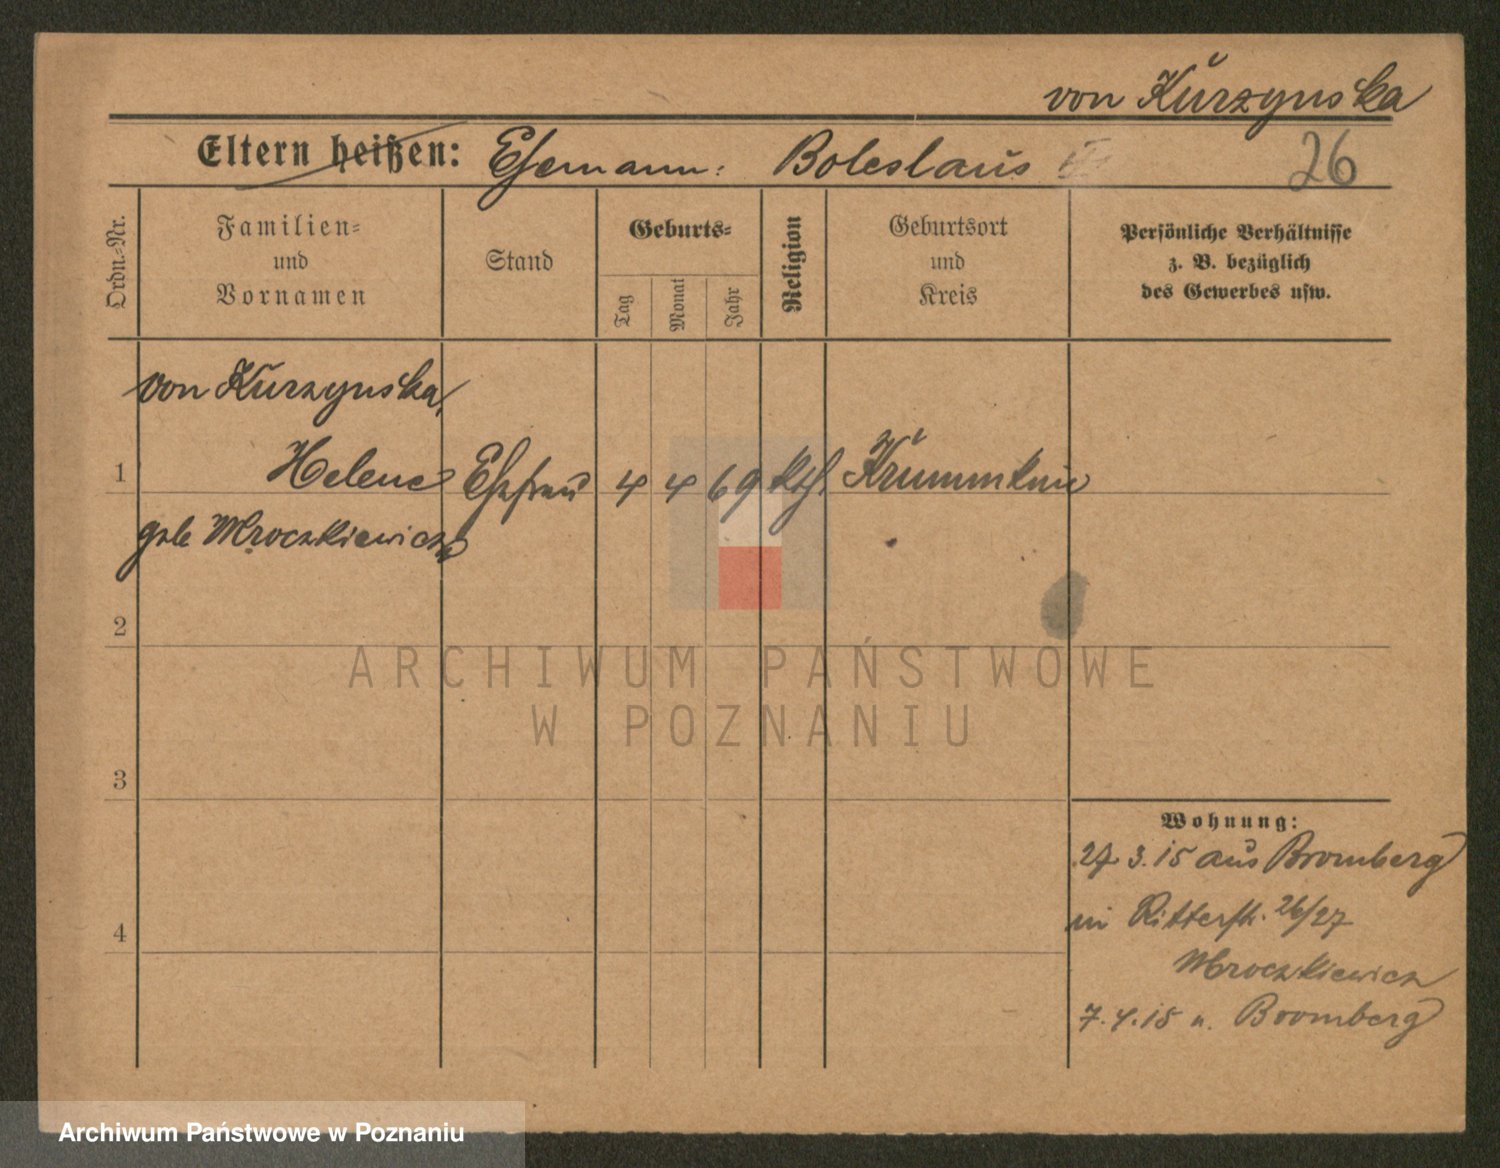 von Kurzynska
Eltern heißen: Ehemann: Boleslaus
26
Ordn.-Nr.
Familien-
und
Vornamen
Stand
Geburts-
Tag
Monat
Jahr
Religion
Geburtsort
und
Kreis
Persönliche Verhältnisse
z. B. bezüglich
des Gewerbes usw.
von Kurzynska,
1 Helene Ehefrau 4 4 69 kth. Krummknie
geb Mroczkiewicz
2
3
4
Wohnung:
27.3.15 aus Bromberg
in Ritterstr. 26/27
Mroczkiewicz
7.4.15 n. Bromberg
ARCHIWUM PAŃSTWOWE
W POZNANIU
Archiwum Państwowe w Poznaniu